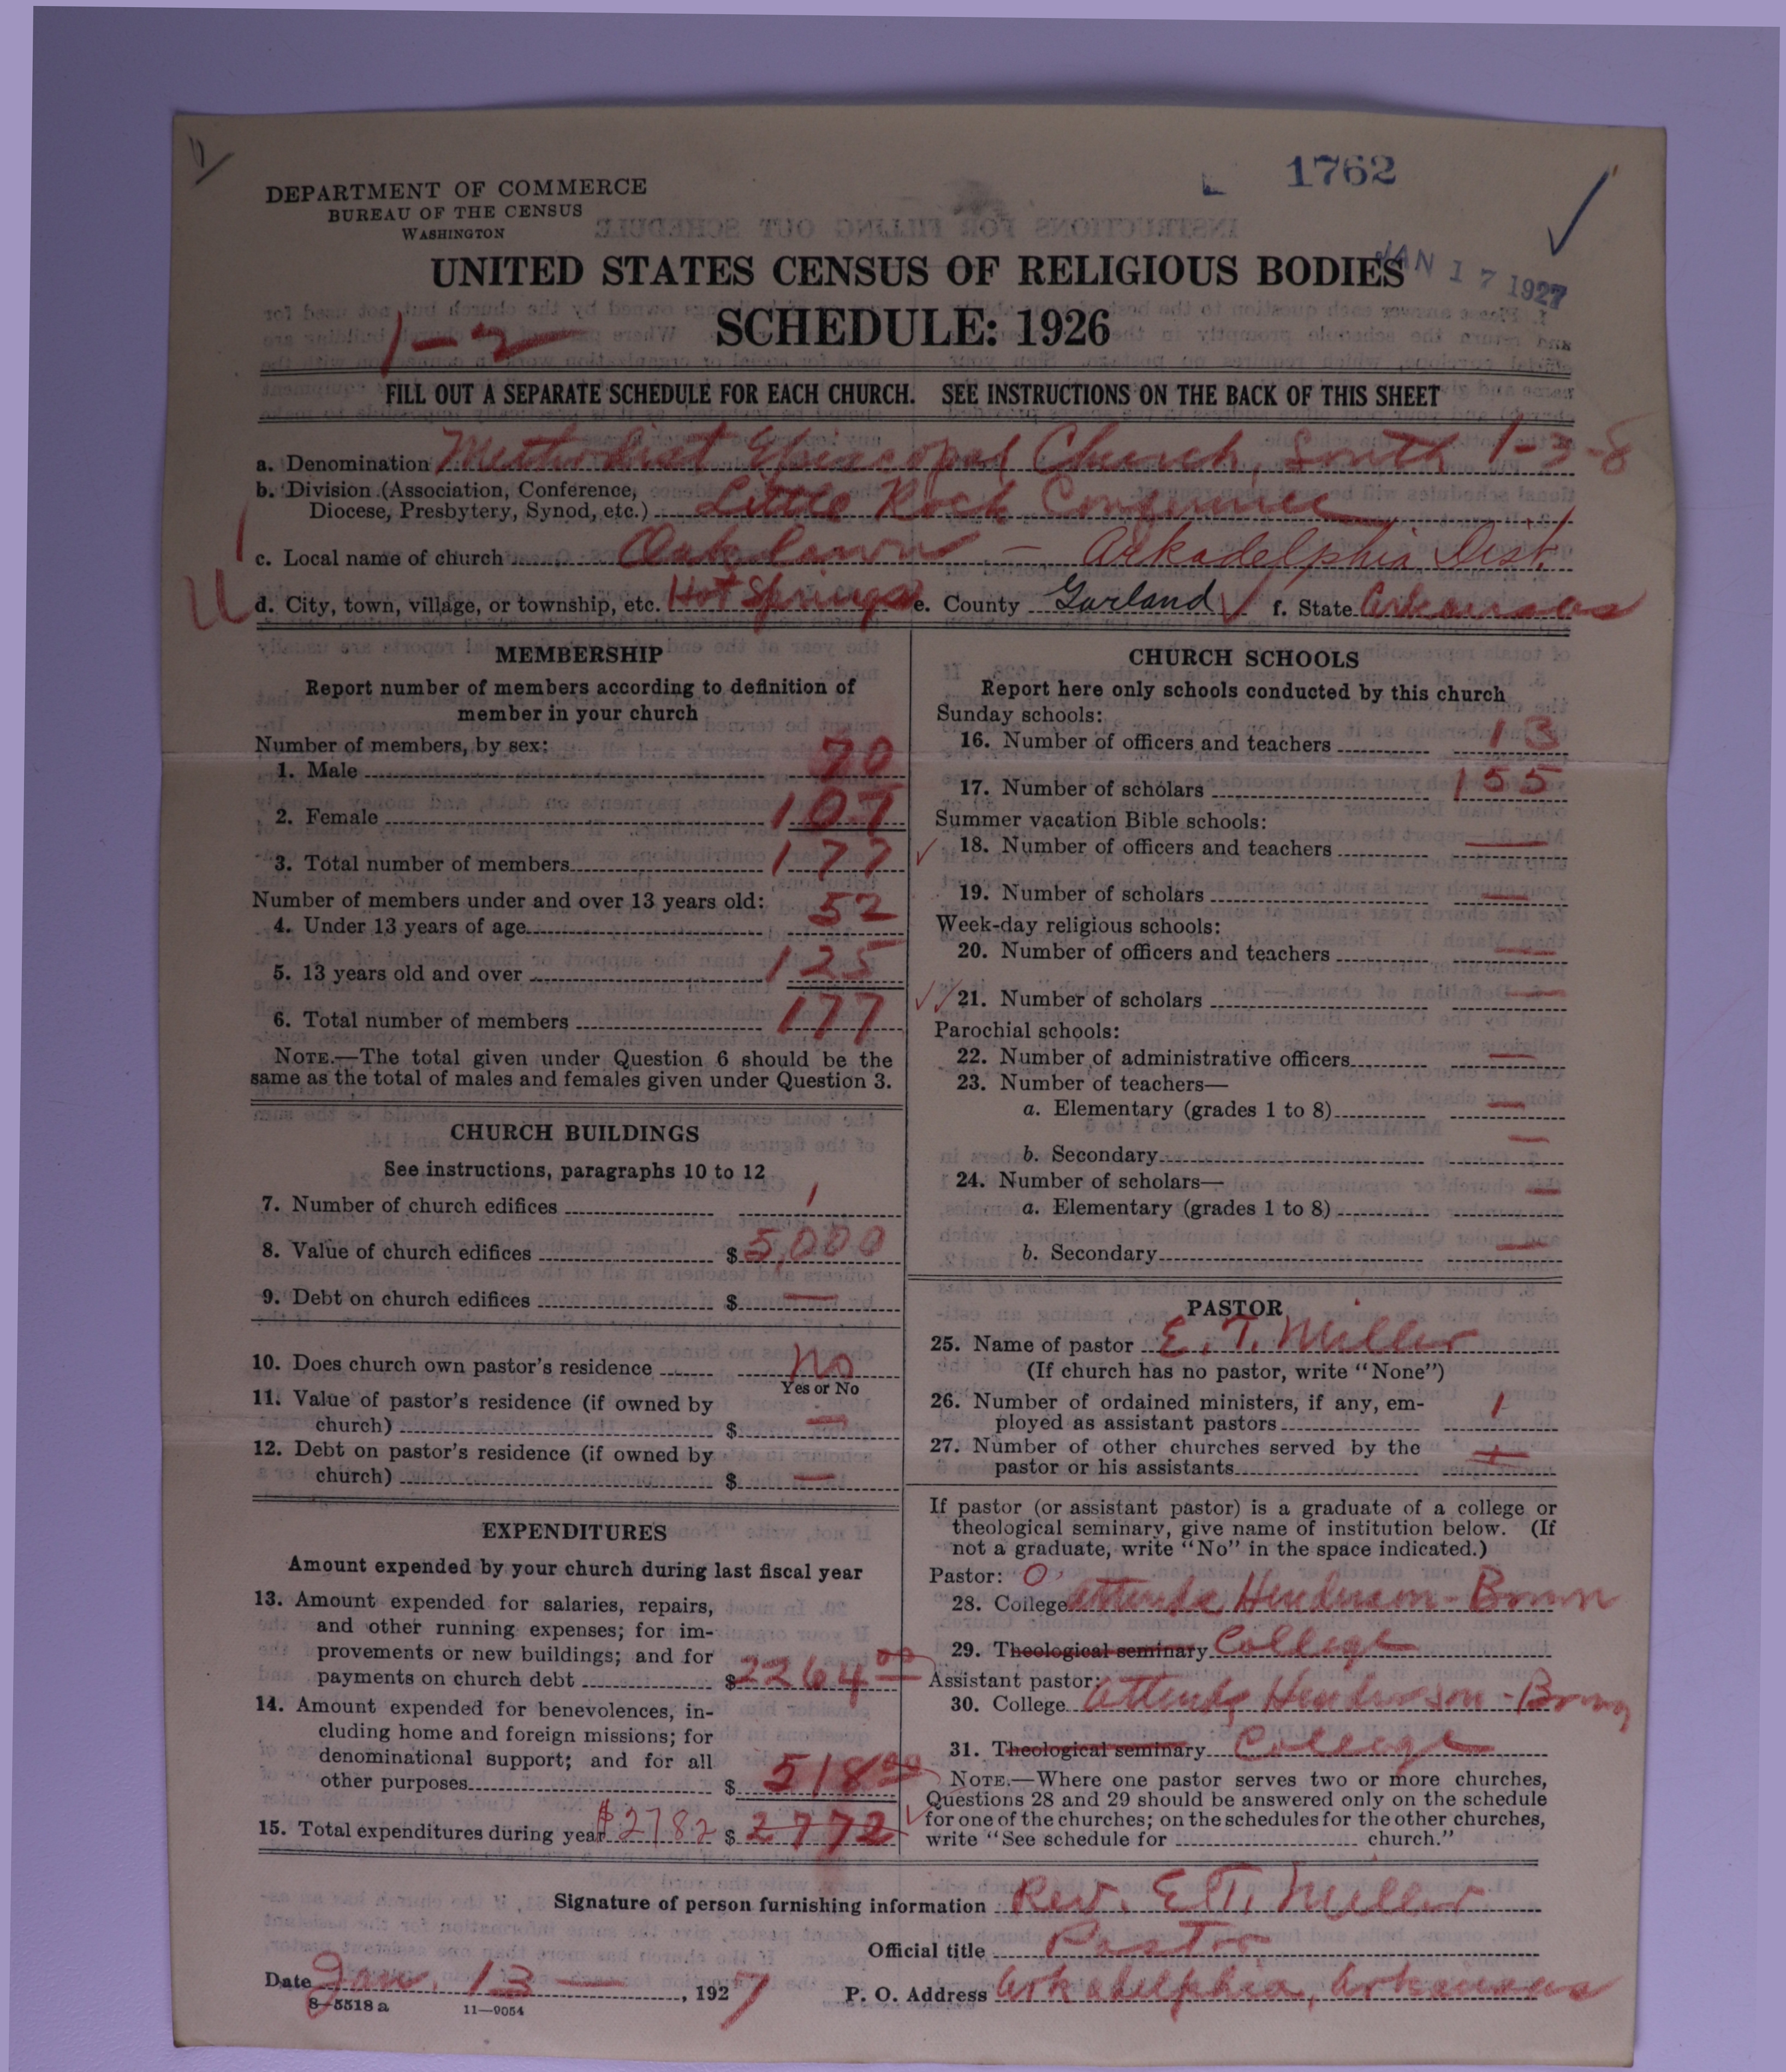 1762
DEPARTMENT OF COMMERCE
BUREAU OF THE CENSUS
WASHINGTON
UNITED STATES CENSUS OF RELIGIOUS BODIES
JAN 17 1927
SCHEDULE: 1926
1-2
FILL OUT A SEPARATE SCHEDULE FOR EACH CHURCH. SEE INSTRUCTIONS ON THE BACK OF THIS SHEET
a. Denomination Methodist Episcopal Church, South 1-3-8
b. Division (Association, Conference,
Diocese, Presbytery, Synod, etc.) Little Rock Conference
c. Local name of church Oaklawn — Arkadelphia Dist.
d. City, town, village, or township, etc. Hot Springs e. County Garland f. State Arkansas
MEMBERSHIP
Report number of members according to definition of
member in your church
Number of members, by sex:
1. Male 70
2. Female 107
3. Total number of members 177
Number of members under and over 13 years old:
4. Under 13 years of age 52
5. 13 years old and over 125
6. Total number of members 177
NOTE.—The total given under Question 6 should be the
same as the total of males and females given under Question 3.
CHURCH BUILDINGS
See instructions, paragraphs 10 to 12
7. Number of church edifices 1
8. Value of church edifices $ 5,000
9. Debt on church edifices $ —
10. Does church own pastor's residence No
Yes or No
11. Value of pastor's residence (if owned by
church) $ —
12. Debt on pastor's residence (if owned by
church) $ —
EXPENDITURES
Amount expended by your church during last fiscal year
13. Amount expended for salaries, repairs,
and other running expenses; for im-
provements or new buildings; and for
payments on church debt $ 2264 00
14. Amount expended for benevolences, in-
cluding home and foreign missions; for
denominational support; and for all
other purposes $ 518 00
15. Total expenditures during year $2782 $ 2772
CHURCH SCHOOLS
Report here only schools conducted by this church
Sunday schools:
16. Number of officers and teachers 13
17. Number of scholars 155
Summer vacation Bible schools:
18. Number of officers and teachers —
19. Number of scholars —
Week-day religious schools:
20. Number of officers and teachers —
21. Number of scholars —
Parochial schools:
22. Number of administrative officers —
23. Number of teachers—
a. Elementary (grades 1 to 8) —
b. Secondary —
24. Number of scholars—
a. Elementary (grades 1 to 8) —
b. Secondary —
PASTOR
25. Name of pastor E. T. Miller
(If church has no pastor, write "None")
26. Number of ordained ministers, if any, em-
ployed as assistant pastors 1
27. Number of other churches served by the
pastor or his assistants
If pastor (or assistant pastor) is a graduate of a college or
theological seminary, give name of institution below. (If
not a graduate, write "No" in the space indicated.)
Pastor: O
28. College Attends Henderson-Brown
29. Theological seminary College
Assistant pastor:
30. College Attends Henderson-Brown
31. Theological seminary College
NOTE.—Where one pastor serves two or more churches,
Questions 28 and 29 should be answered only on the schedule
for one of the churches; on the schedules for the other churches,
write "See schedule for church."
Signature of person furnishing information Rev. E. T. Miller
Official title Pastor
Date Jan. 13 —, 1927 P. O. Address Arkadelphia, Arkansas
8—5518 a 11—9054